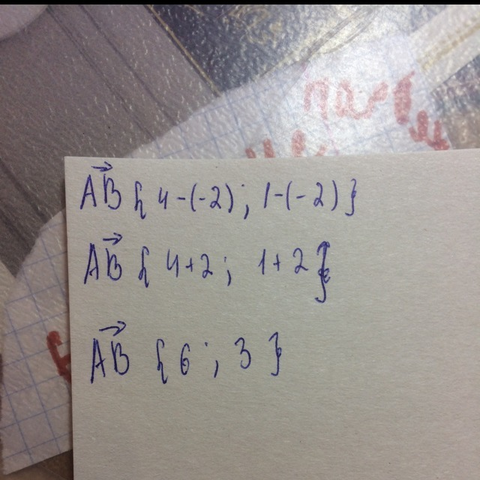 AB⃗ { 4-(-2); 1-(-2) }
AB⃗ { 4+2; 1+2 }
AB⃗ { 6 ; 3 }